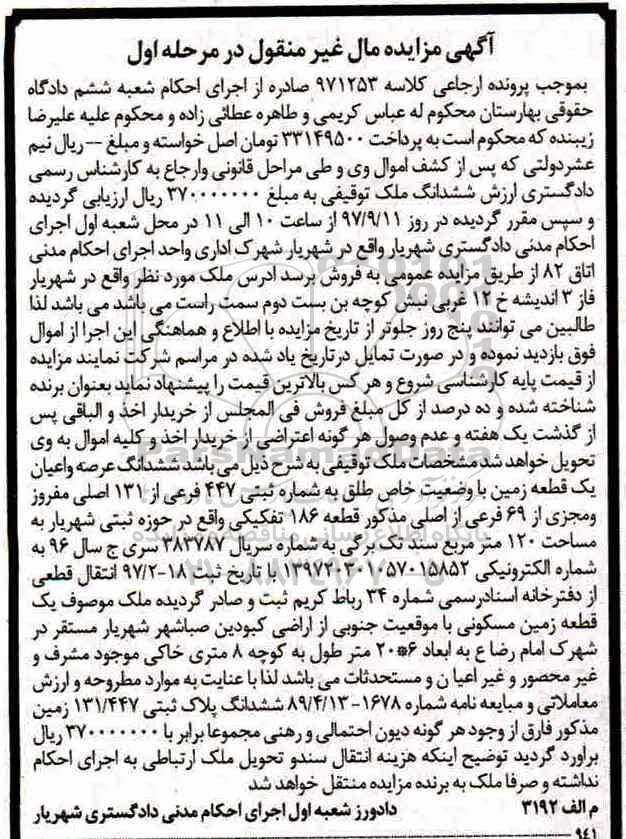 آگهی مزایده مال غیر منقول در مرحله اول
بموجب پرونده ارجاعی کلاسه ۹۷۱۲۵۳ صادره از اجرای احکام شعبه ششم دادگاه
حقوقی بهارستان محکوم له عباس کریمی و طاهره عطائی زاده و محکوم علیه علیرضا
زیبنده که محکوم است به پرداخت ۳۳۱۴۹۵۰۰ تومان اصل خواسته و مبلغ --- ریال نیم
عشردولتی که پس از کشف اموال وی و طی مراحل قانونی وارجاع به کارشناس رسمی
دادگستری ارزش ششدانگ ملک توقیفی به مبلغ ۳۷۰۰۰۰۰۰۰ ریال ارزیابی گردیده
و سپس مقرر گردیده در روز ۹۷/۹/۱۱ از ساعت ۱۰ الی ۱۱ در محل شعبه اول اجرای
احکام مدنی دادگستری شهریار واقع در شهریار شهرک اداری واحد اجرای احکام مدنی
اتاق ۸۲ از طریق مزایده عمومی به فروش برسد ادرس ملک مورد نظر واقع در شهریار
فاز ۳ اندیشه خ ۱۲ غربی نبش کوچه بن بست دوم سمت راست می باشد می باشد لذا
طالبین می توانند پنج روز جلوتر از تاریخ مزایده با اطلاع و هماهنگی این اجرا از اموال
فوق بازدید نموده و در صورت تمایل درتاریخ یاد شده در مراسم شرکت نمایند مزایده
از قیمت پایه کارشناسی شروع و هر کس بالاترین قیمت را پیشنهاد نماید بعنوان برنده
شناخته شده و ده درصد از کل مبلغ فروش فی المجلس از خریدار اخذ و الباقی پس
از گذشت یک هفته و عدم وصول هر گونه اعتراضی از خریدار اخذ و کلیه اموال به وی
تحویل خواهد شد مشخصات ملک توقیفی به شرح ذیل می باشد ششدانگ عرصه واعیان
یک قطعه زمین با وضعیت خاص طلق به شماره ثبتی ۴۴۷ فرعی از ۱۳۱ اصلی مفروز
ومجزی از ۶۹ فرعی از اصلی مذکور قطعه ۱۸۶ تفکیکی واقع در حوزه ثبتی شهریار به
مساحت ۱۲۰ متر مربع سند تک برگی به شماره سریال ۳۸۳۷۸۷ سری ج سال ۹۶ به
شماره الکترونیکی ۱۳۹۷۲۰۳۰۱۰۵۷۰۱۵۸۵۲ با تاریخ ثبت ۱۸-۹۷/۲ انتقال قطعی
از دفترخانه اسنادرسمی شماره ۳۴ رباط کریم ثبت و صادر گردیده ملک موصوف یک
قطعه زمین مسکونی با موقعیت جنوبی از اراضی کبودین صباشهر شهریار مستقر در
شهرک امام رضا ع به ابعاد ۶*۲۰ متر طول به کوچه ۸ متری خاکی موجود مشرف و
غیر محصور و غیر اعیا ن و مستحدثات می باشد لذا با عنایت به موارد مطروحه و ارزش
معاملاتی و مبایعه نامه شماره ۱۶۷۸-۸۹/۴/۱۳ ششدانگ پلاک ثبتی ۱۳۱/۴۴۷ زمین
مذکور فارق از وجود هر گونه دیون احتمالی و رهنی مجموعا برابر با ۳۷۰۰۰۰۰۰۰ ریال
براورد گردید توضیح اینکه هزینه انتقال سندو تحویل ملک ارتباطی به اجرای احکام
نداشته و صرفا ملک به برنده مزایده منتقل خواهد شد
م الف ۳۱۹۲ دادورز شعبه اول اجرای احکام مدنی دادگستری شهریار
۹۴۱
ParsNamadData
پایگاه اطلاع رسانی مناقصه و مزایده